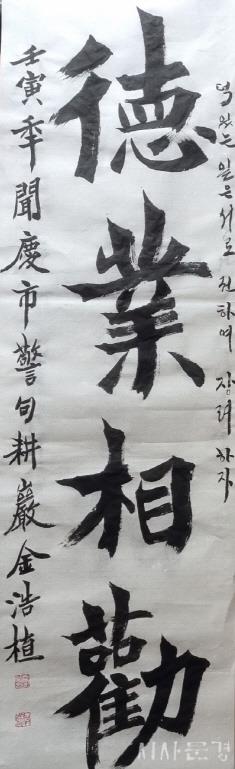 덕 있는 일은 서로 권하며 장려하자
德業相勸
壬寅年聞慶市警句耕巖金浩植
시사문경